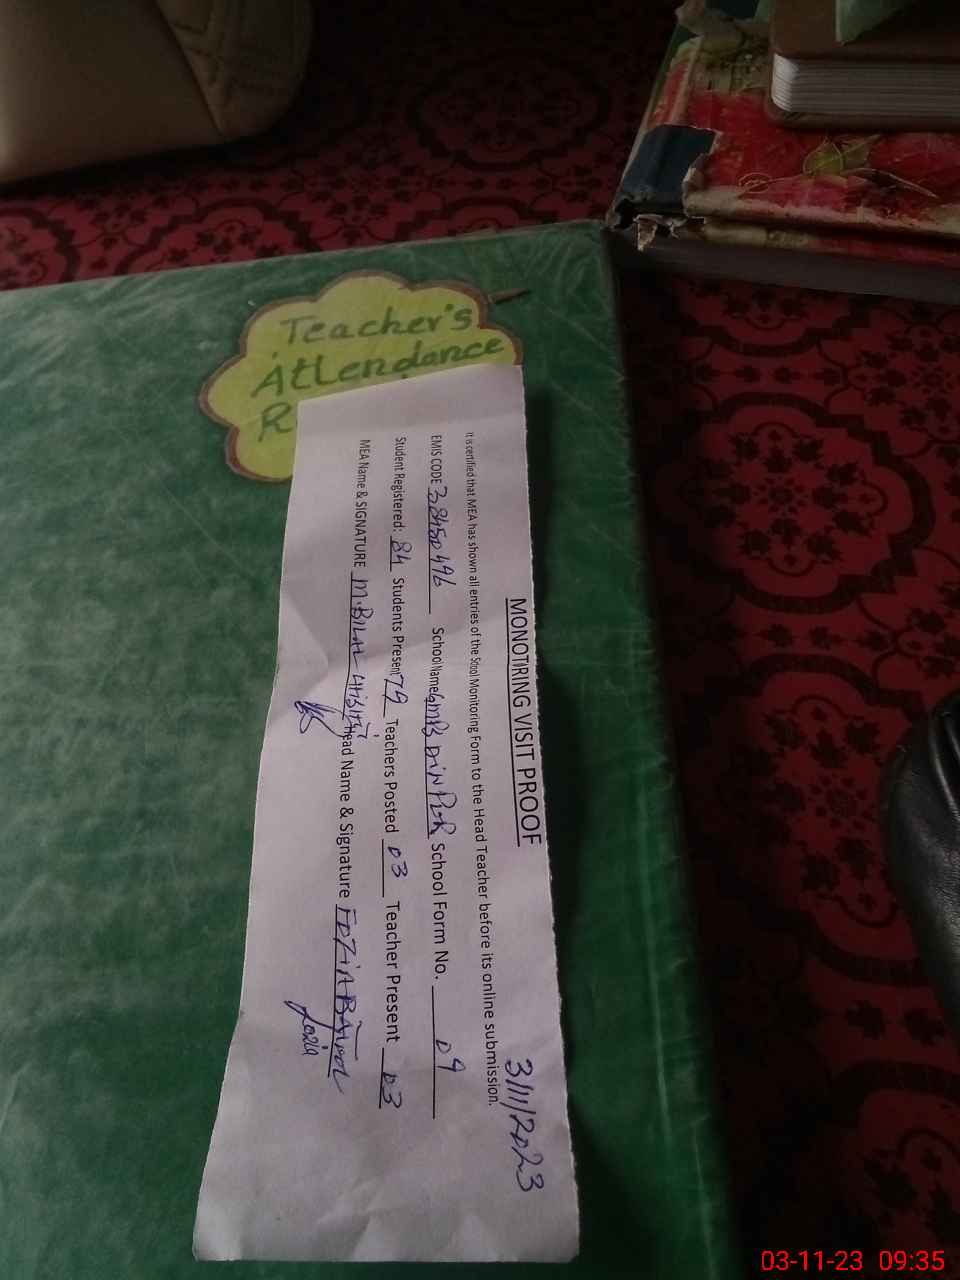 Teacher's
Attendance
R
MONOTIRING VISIT PROOF
3/11/2023
It is certified that MEA has shown all entries of the Scool Monitoring Form to the Head Teacher before its online submission.
EMIS CODE 38450496 School Name GMPS DIN PUR School Form No. 09
Student Registered: 84 Students Present 79 Teachers Posted 03 Teacher Present 03
MEA Name & SIGNATURE M.BILAL Head Name & Signature FOZIA BATOOL
Fozia
03-11-23 09:35